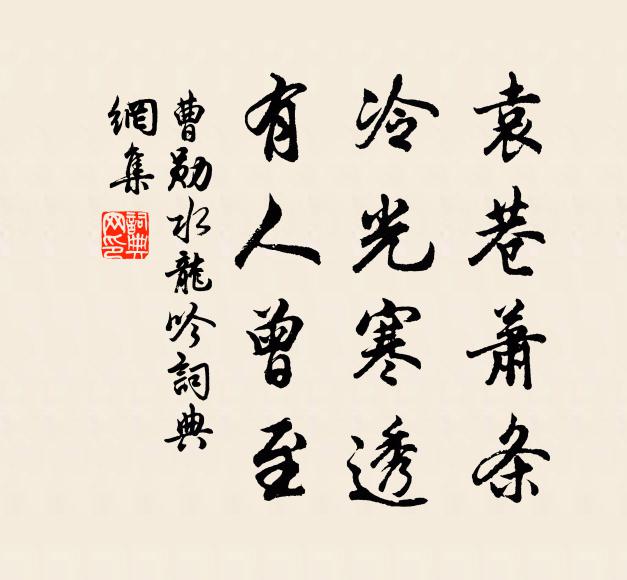 袁巷萧条
冷光寒透
有人曾至
曹勋水龍吟詞典
網集
詞典
网印